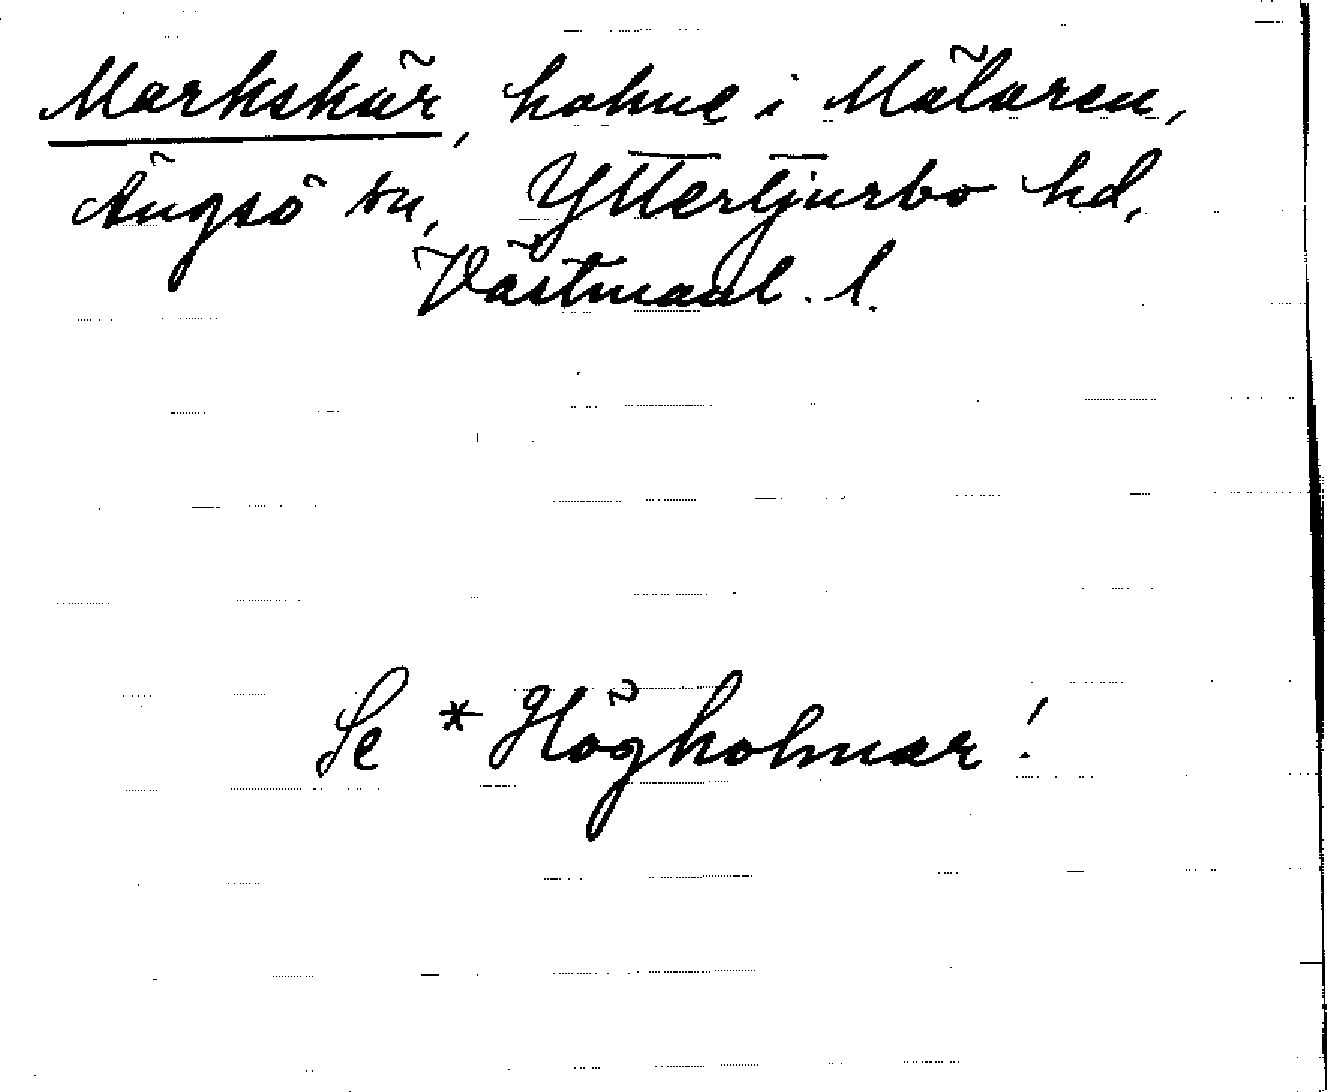 Markskär, holme i Mälaren,
Ängsö sn, Yttertjurbo hd,
Västmanl. l.
Se * Högholmar!